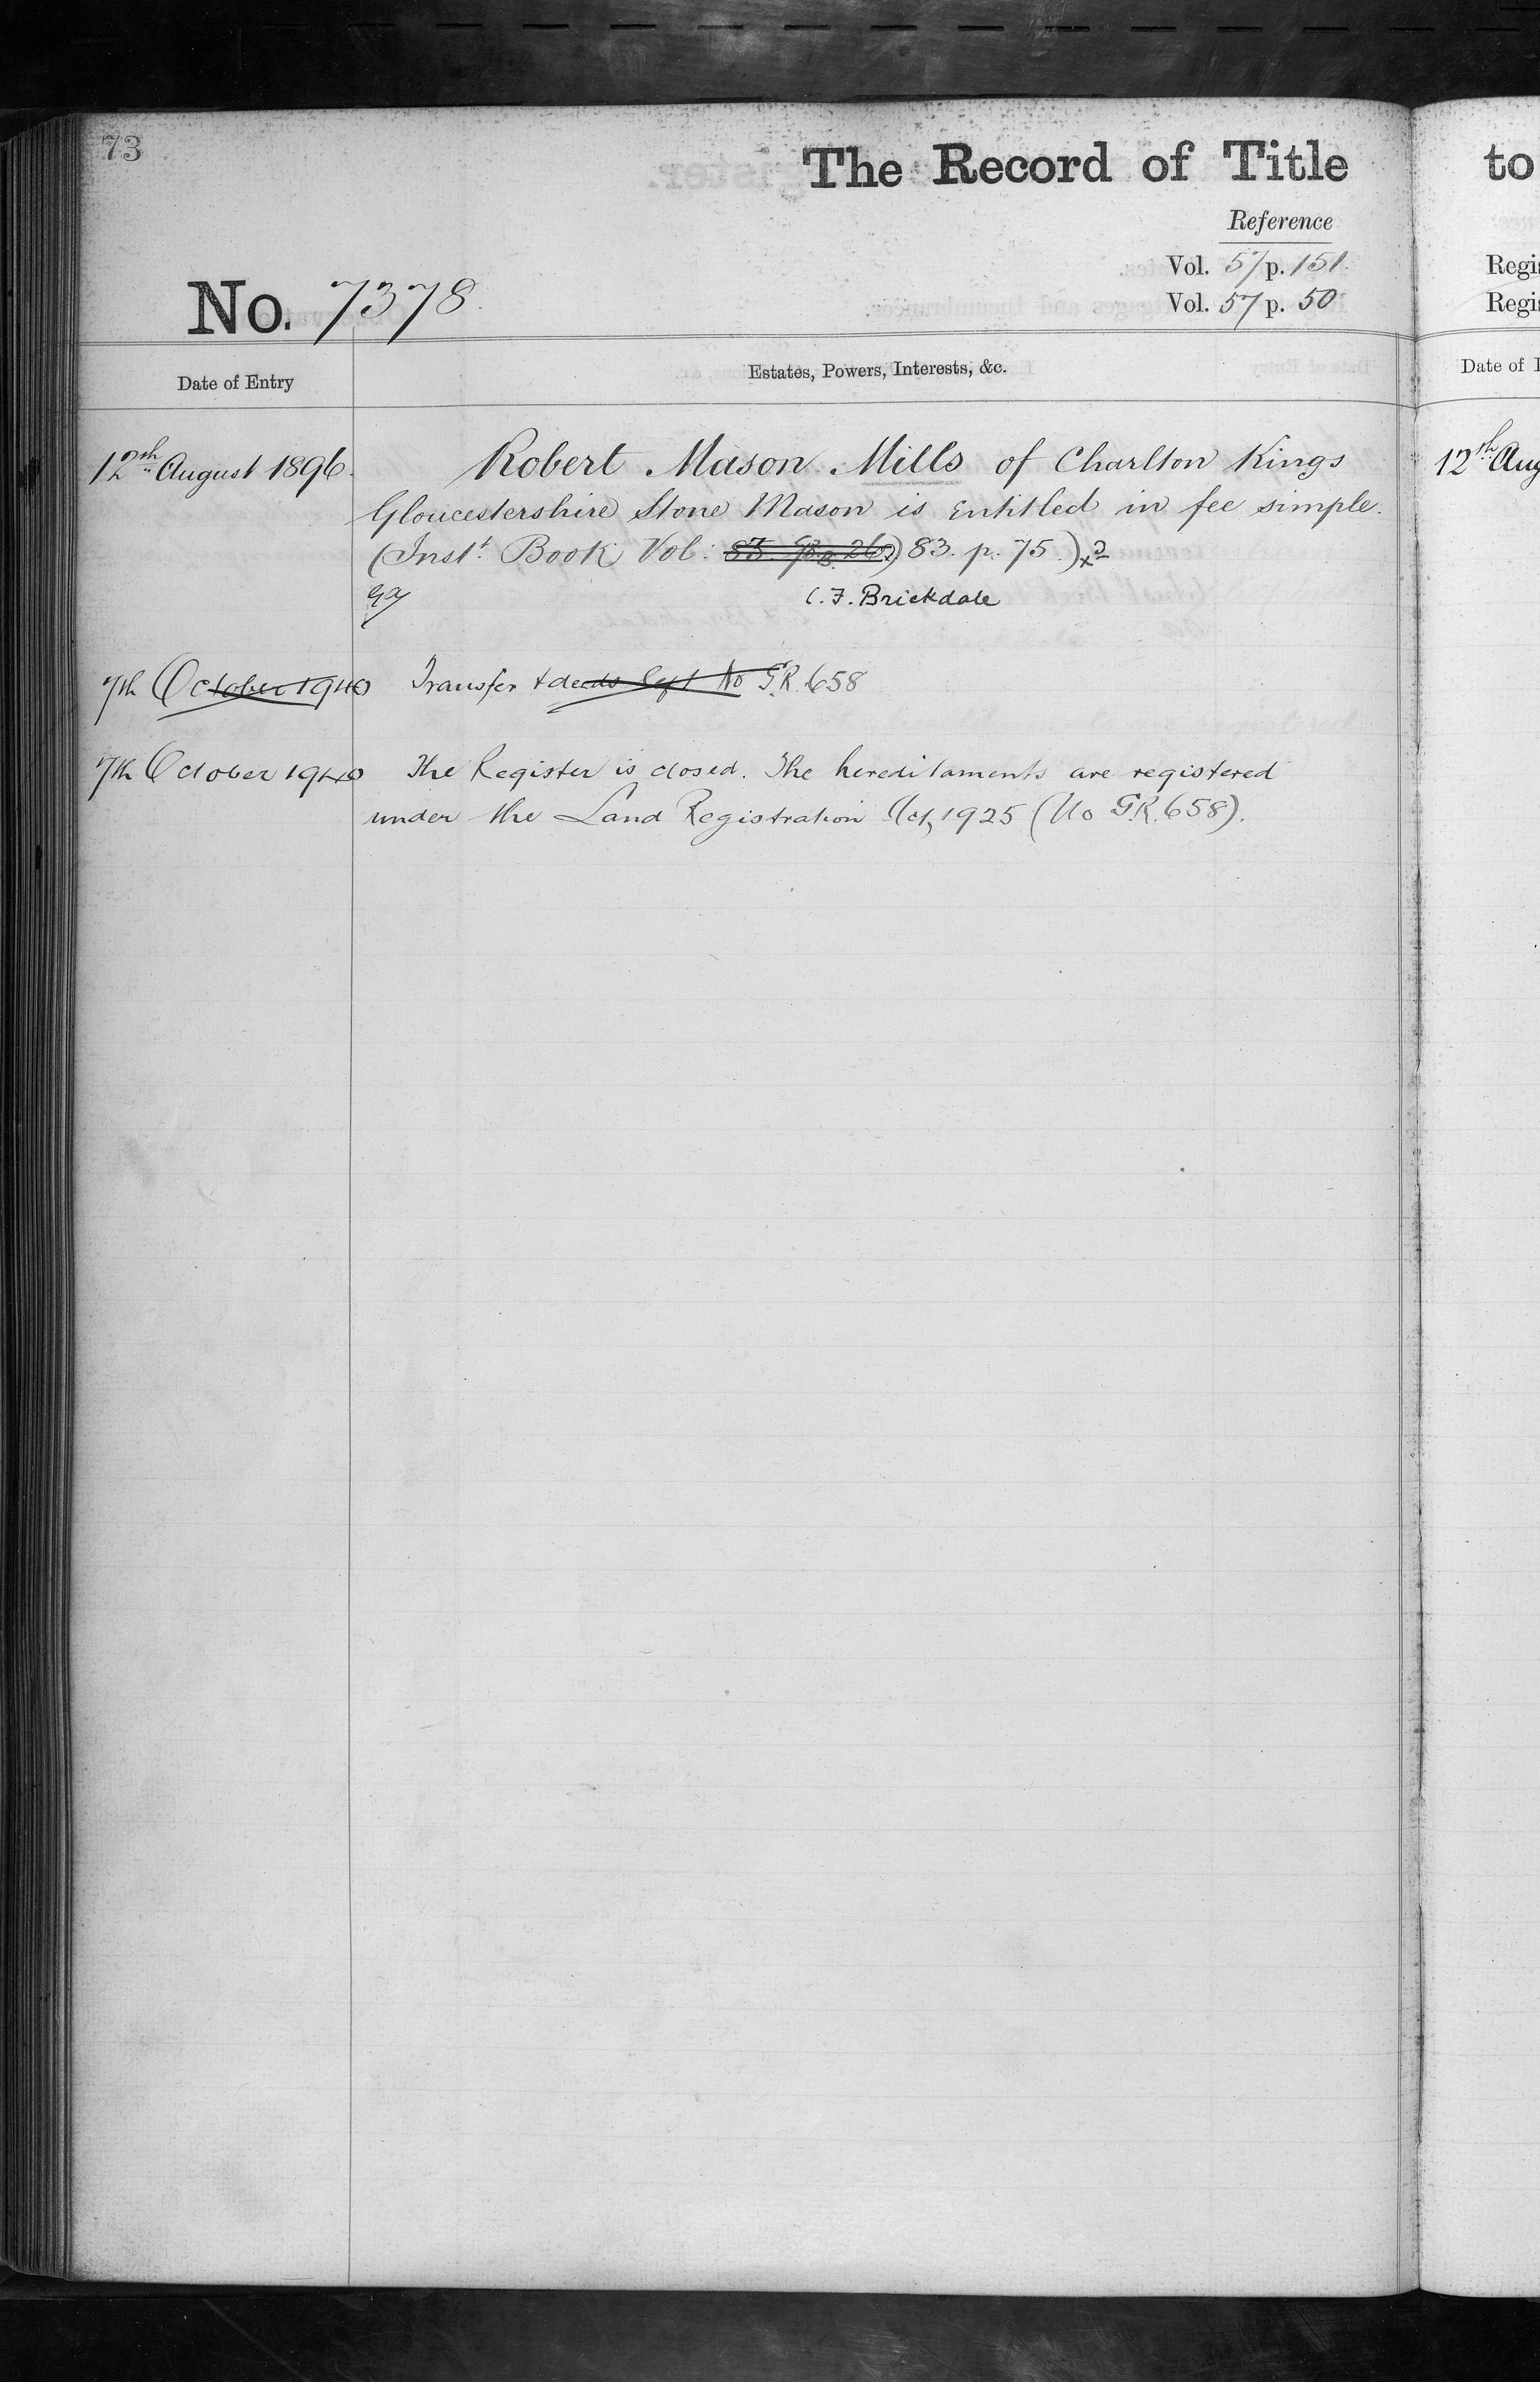 73
The Record of Title
Reference
Vol. 57 p. 151.
Vol. 57 p. 50
No. 7378.
Date of Entry
Estates, Powers, Interests, &c.
12th August 1896.
Robert Mason Mills of Charlton Kings
Gloucestershire Stone Mason is entitled in fee simple.
(Inst. Book Vol: 83. p. 75.)
C. F. Brickdale
7th October 1940 Transfer & deeds left No G.R. 658
7th October 1940 The Register is closed. The hereditaments are registered
under the Land Registration Act, 1925 (No G.R. 658).
to
Regis
Regis
Date of
12th Aug